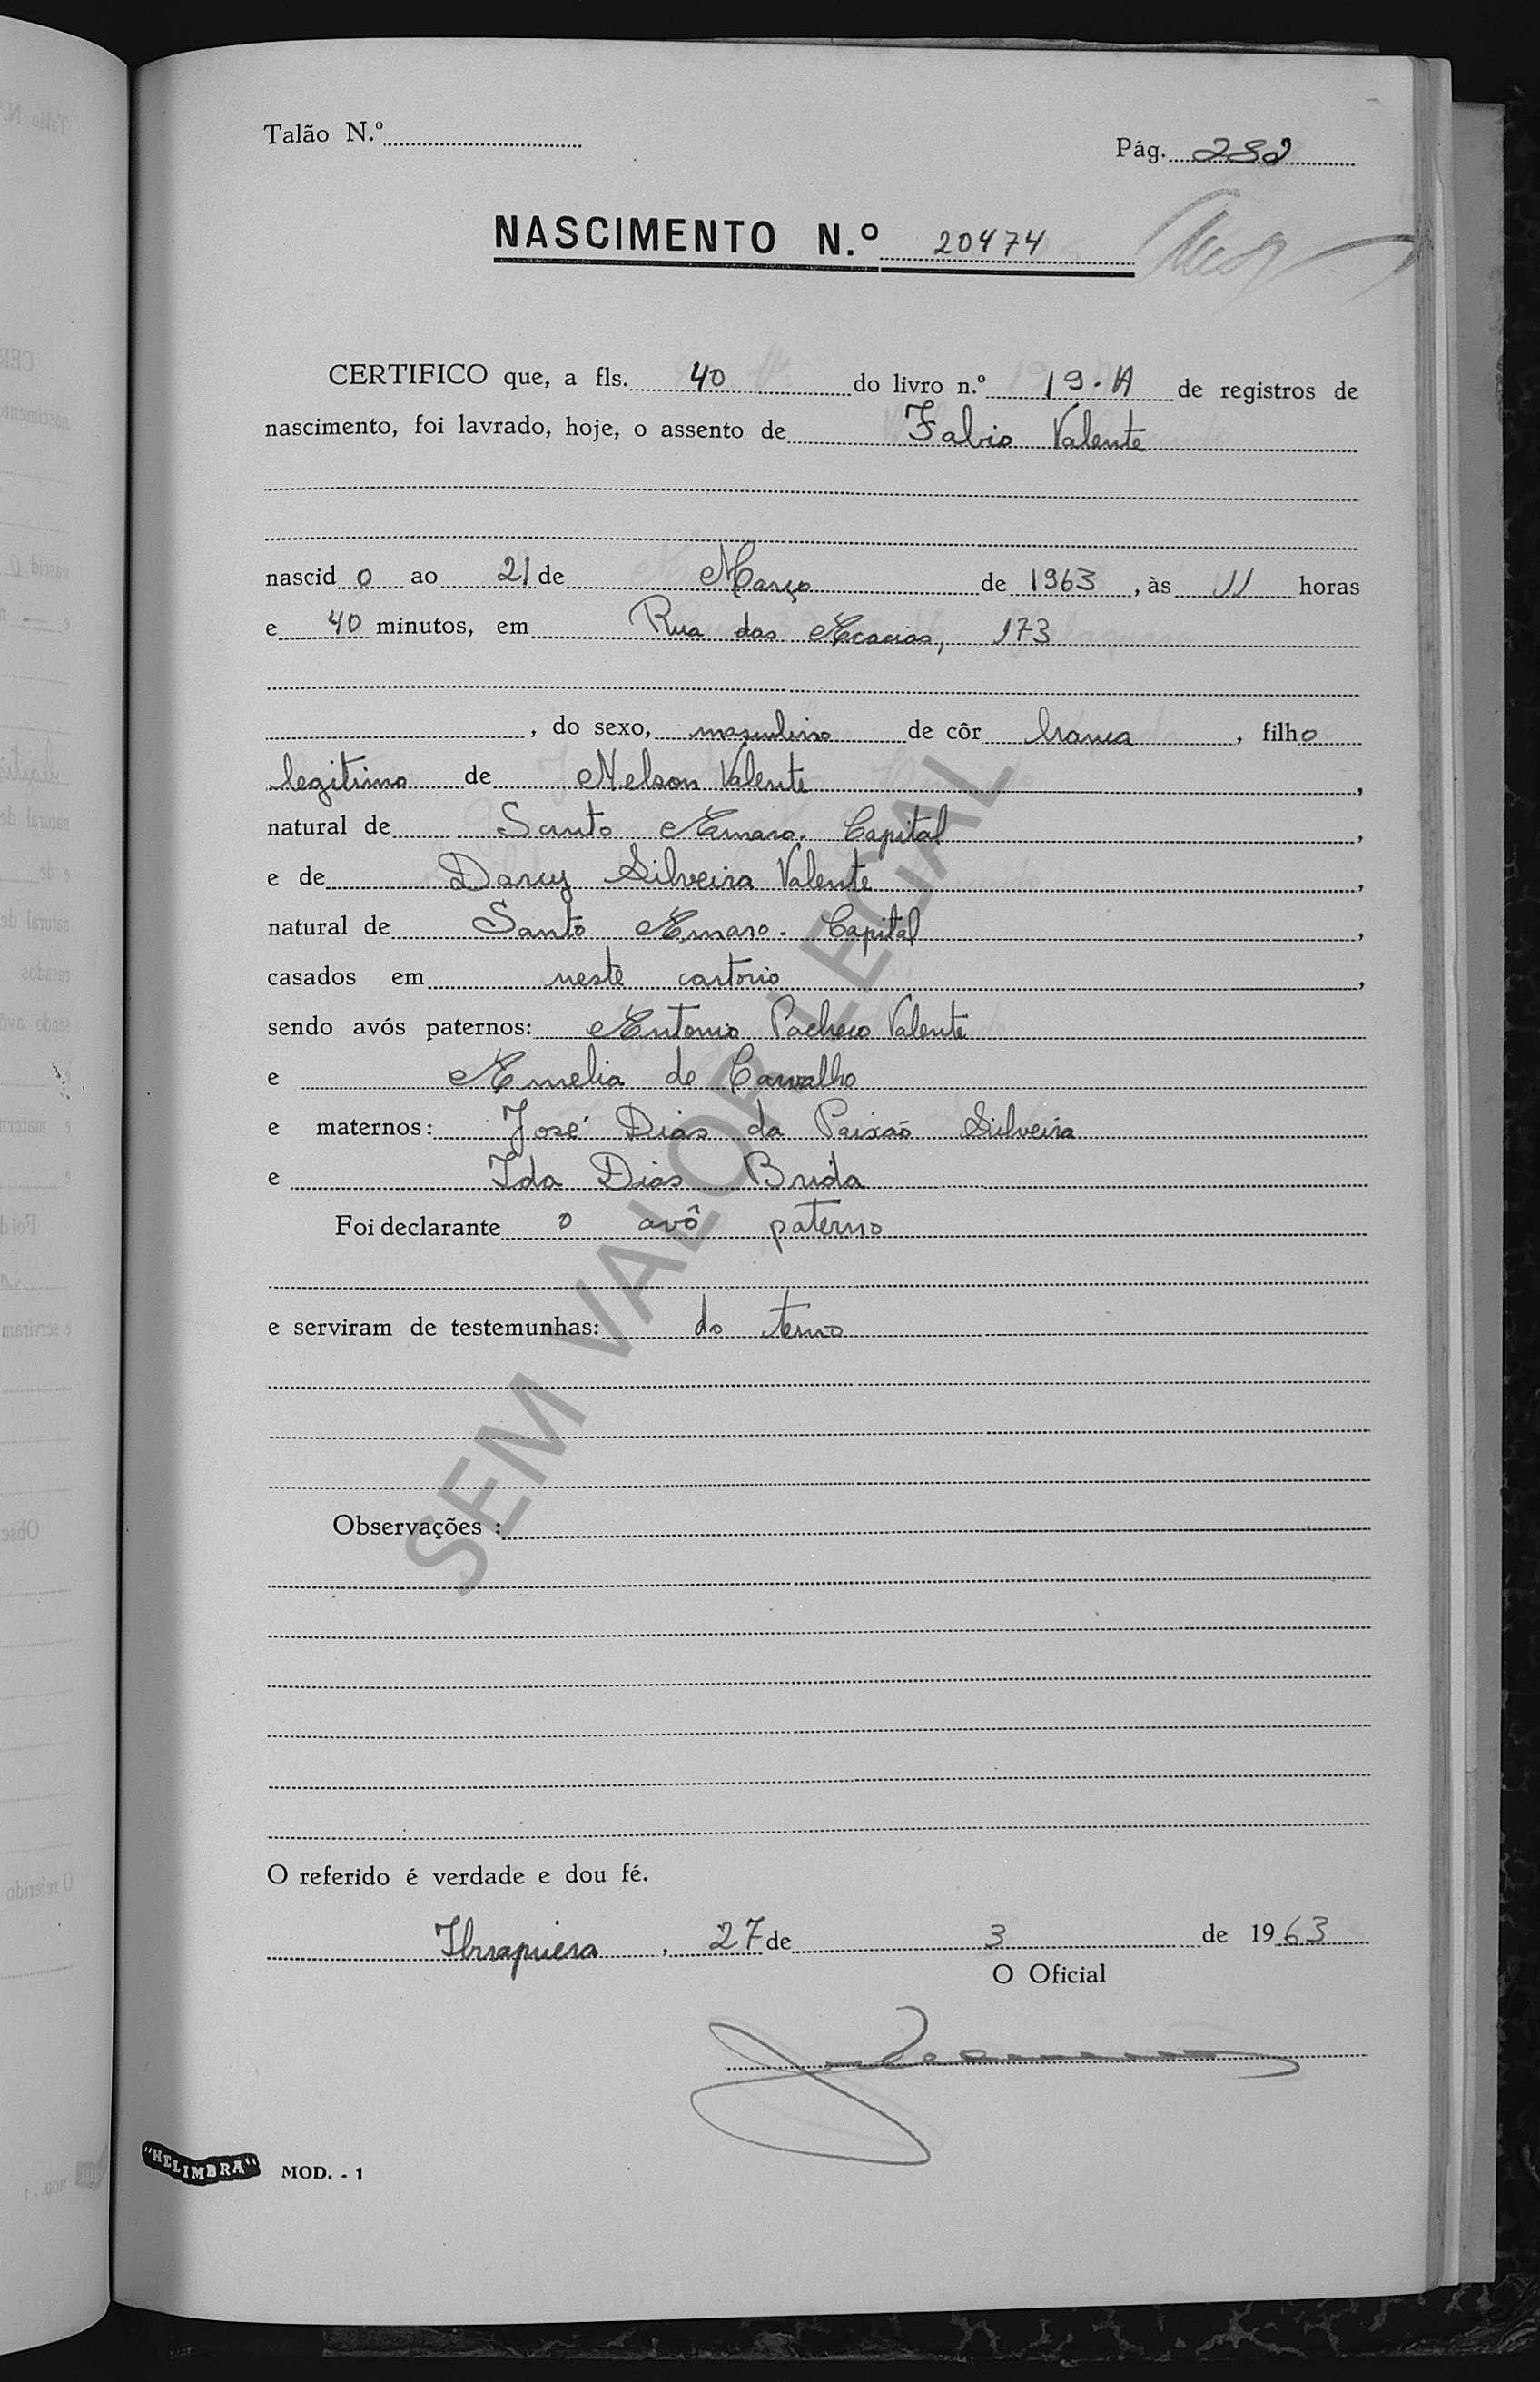 Talão N.º
Pág. 282
NASCIMENTO N.º 20474
CERTIFICO que, a fls. 40 do livro n.º 19-A de registros de
nascimento, foi lavrado, hoje, o assento de Fabio Valente
nascid o ao 21 de Março de 1963, às 11 horas
e 40 minutos, em Rua das Acacias, 173
, do sexo, masculino de côr branca, filho
legitimo de Nelson Valente,
natural de Santo Amaro. Capital,
e de Darcy Silveira Valente,
natural de Santo Amaro. Capital,
casados em neste cartorio,
sendo avós paternos: Antonio Pacheco Valente
e Amelia de Carvalho
e maternos: José Dias da Paixão Silveira
e Ida Dias Brida
Foi declarante o avô paterno
e serviram de testemunhas: do termo
Observações :
O referido é verdade e dou fé.
Ibirapuera, 27 de 3 de 1963
O Oficial
"HELIMBRA" MOD. - 1
SEM VALOR LEGAL